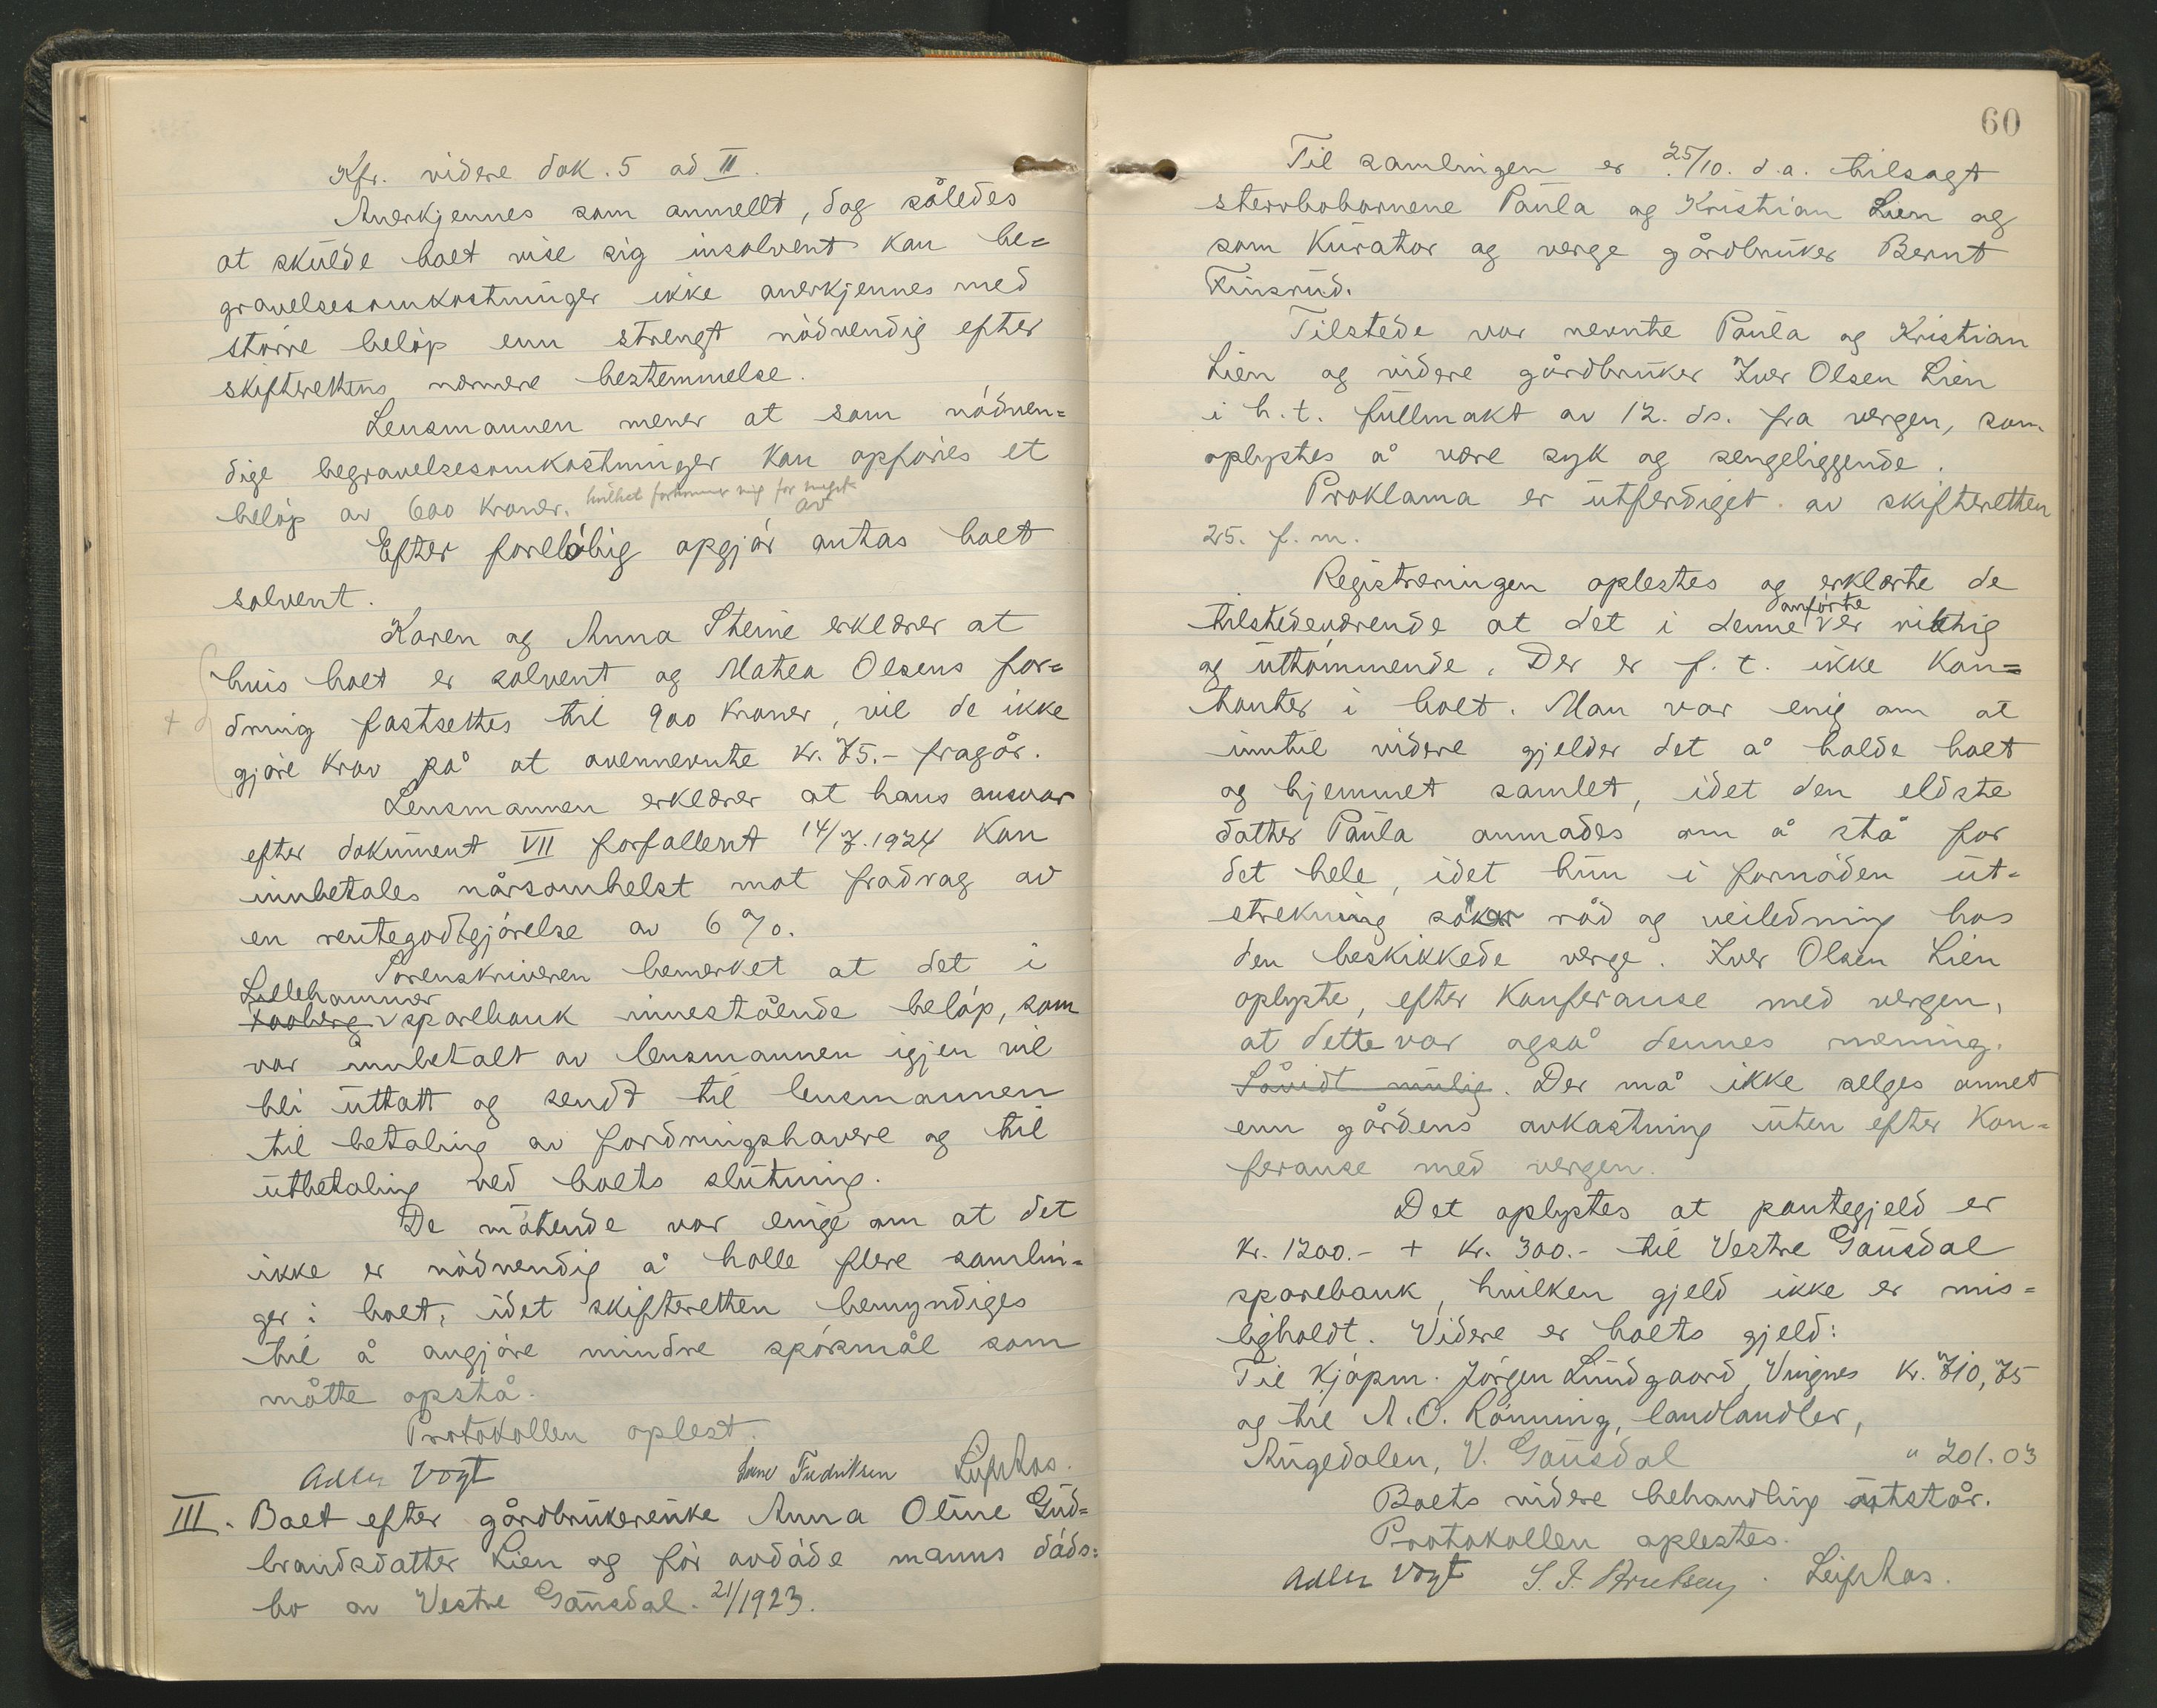 Kfr. videre dok. 5 ad II.
Anerkjennes som anmellt, dog således
at skulde boet vise sig insolvent kan be=
gravelsesomkostninger ikke anerkjennes med
större belöp enn strengt nödvendig efter
skifterettens nærmere bestemmelse.
Lensmannen mener at som nödven=
dige begravelsesomkostninger kan opföres et
belöp av 600 kroner. hvilket forekommer mig for meget
av
Efter forelöbig opgjör antas boet
solvent.
Karen og Anna Steine erklærer at
hvis boet er solvent og Matea Olsens for=
dring fastsettes til 900 kroner, vil de ikke
gjöre krav på at ovennevnte kr. 75.- fragår.
Lensmannen erklærer at hans ansvar
efter dokument VII forfallent 14/7.1924 kan
innbetales nårsomhelst mot fradrag av
en rentegodtgjörelse av 6 %.
Sorenskriveren bemerket at det i
Lillehammer
Faaberg sparebank innestående belöp, som
var innbetalt av lensmannen igjen vil
bli uttatt og sendt til lensmannen
til betaling av fordringshavere og til
utbetaling ved boets slutning.
De mötende var enige om at det
ikke er nödvendig å holle flere samlin=
ger i boet, idet skifteretten bemyndiges
til å avgjöre mindre spörsmål som
måtte opstå.
Protokollen oplest.
Adler Vogt Fredriksen Leif Aas.
III. Boet efter gårdbrukerenke Anna Oline Gud=
brandsdatter Lien og för avdöde manns döds=
bo av Vestre Gausdal. 21/1923.
60
Til samlingen er 25/10. d.a. tilsagt
stervbobarnene Paula og Kristian Lien og
som kurator og verge gårdbruker Bernt
Finsrud.
Tilstede var nevnte Paula og Kristian
Lien og videre gårdbruker Iver Olsen Lien
i h.t. fullmakt av 12. ds. fra vergen, som
oplystes å være syk og sengeliggende.
Proklama er utferdiget av skifteretten
25. f.m.
Registreringen oplestes og erklærte de
anförte
tilstedeværende at det i denne er riktig
og uttömmende. Der er f.t. ikke kon=
tanter i boet. Man var enig om at
inntil videre gjelder det å holde boet
og hjemmet samlet, idet den eldste
datter Paula anmodes om å stå for
det hele, idet hun i fornöden ut=
strekning söker råd og veiledning hos
den beskikkede verge. Iver Olsen Lien
oplyste, efter konferanse med vergen,
at dette var også dennes mening.
Såvidt mulig. Der må ikke selges annet
enn gårdens avkastning uten efter kon=
feranse med vergen.
Det oplystes at pantegjeld er
kr. 1200.- + kr. 300.- til Vestre Gausdal
sparebank, hvilken gjeld ikke er mis=
ligholdt. Videre er boets gjeld:
Til kjöpm. Jörgen Lundgaard, Vingnes kr. 710,75
og til A.O. Rönning, landhandler,
Augedalen, V. Gausdal " 201.03
Boets videre behandling utstår.
Protokollen oplestes.
Adler Vogt Leif Aas.